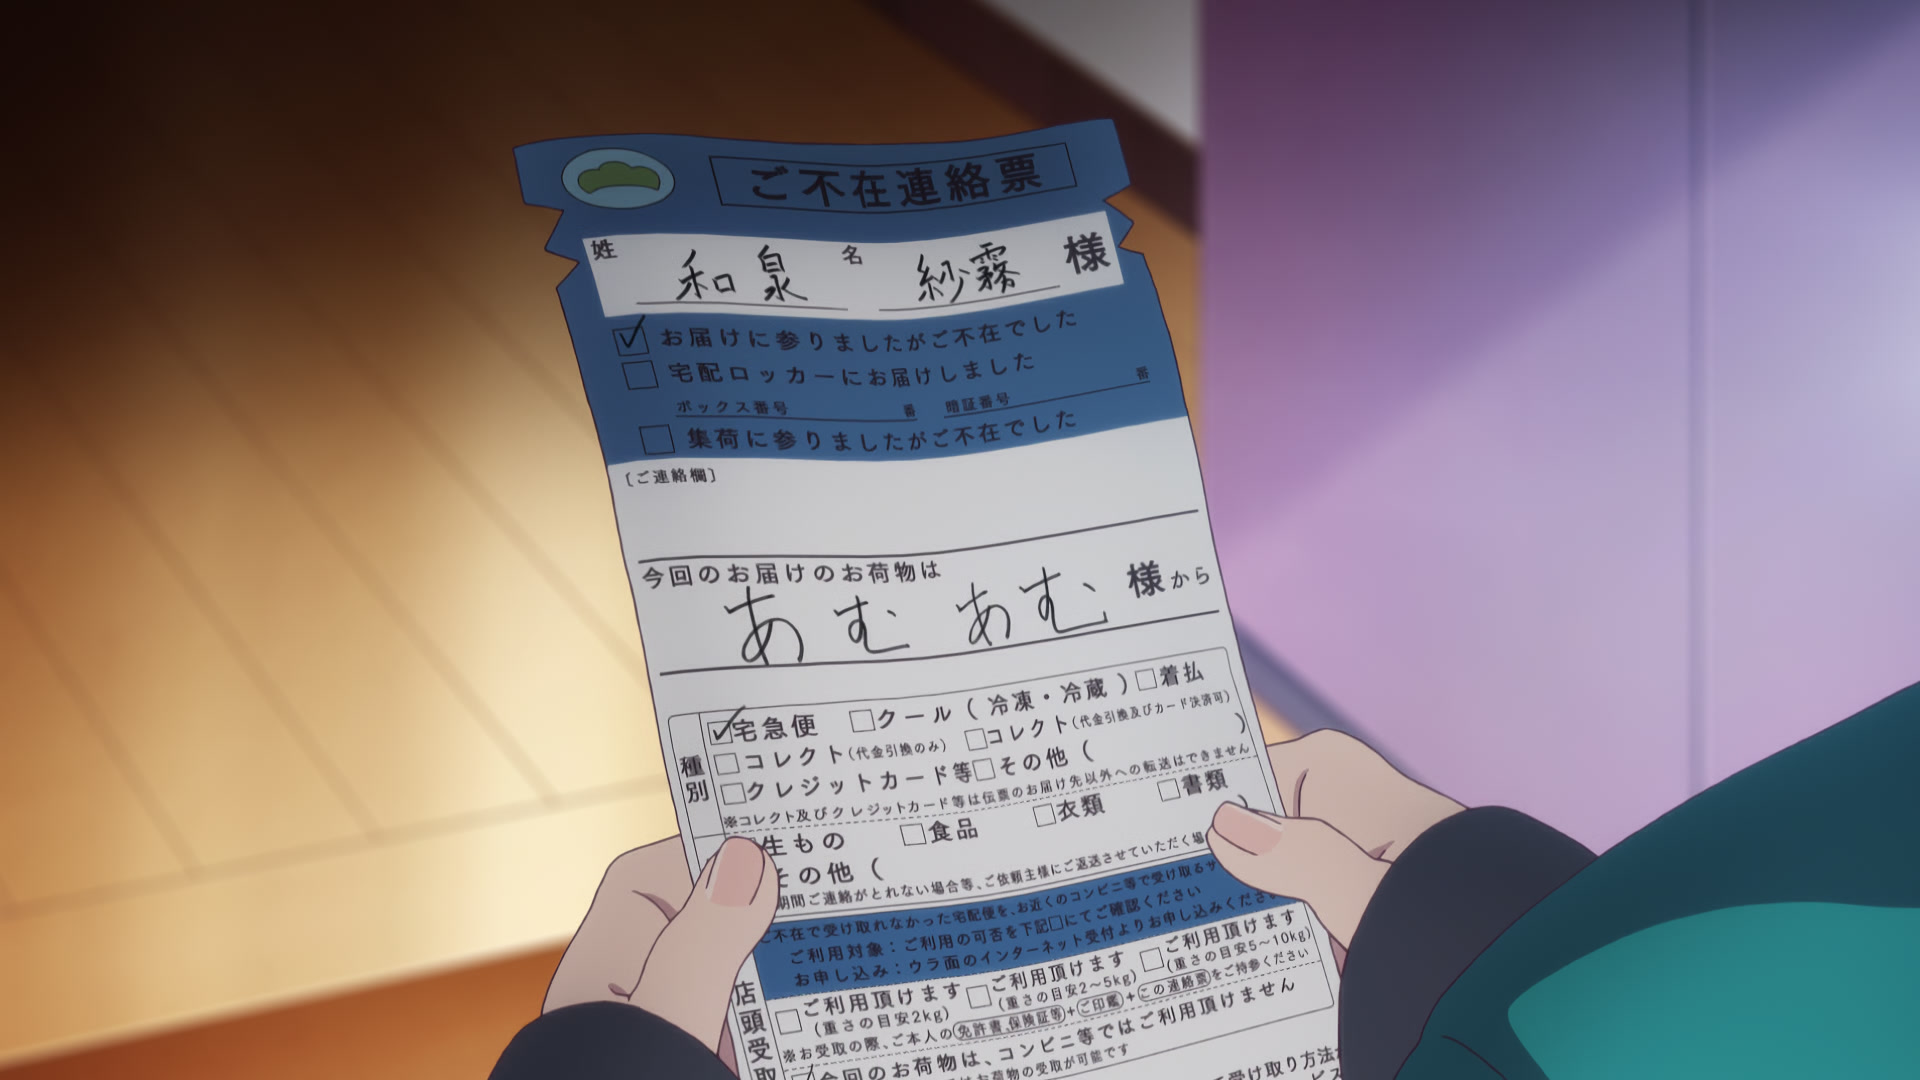 ご不在連絡票
姓 和泉 名 紗霧 様
お届けに参りましたがご不在でした
宅配ロッカーにお届けしました
ボックス番号 番 暗証番号 番
集荷に参りましたがご不在でした
〔ご連絡欄〕
今回のお届けのお荷物は
あむ あむ 様から
種別
宅急便 クール(冷凍・冷蔵) 着払
コレクト(代金引換のみ) コレクト(代金引換及びカード決済可)
クレジットカード等 その他( )
※コレクト及びクレジットカード等は伝票のお届け先以外への転送はできません
生もの 食品 衣類 書類
その他( )
期間ご連絡がとれない場合等、ご依頼主様にご返送させていただく場
ご不在で受け取れなかった宅配便を、お近くのコンビニ等で受け取るサ
ご利用対象:ご利用の可否を下記□にてご確認ください
お申し込み:ウラ面のインターネット受付よりお申し込みください
店頭受取
ご利用頂けます ご利用頂けます ご利用頂けます
(重さの目安2kg) (重さの目安2～5kg) (重さの目安5～10kg)
※お受取の際、ご本人の免許書、保険証等+ご印鑑+この連絡票をご持参ください
今回のお荷物は、コンビニ等ではご利用頂けません
お荷物の受取が可能です
受け取り方法